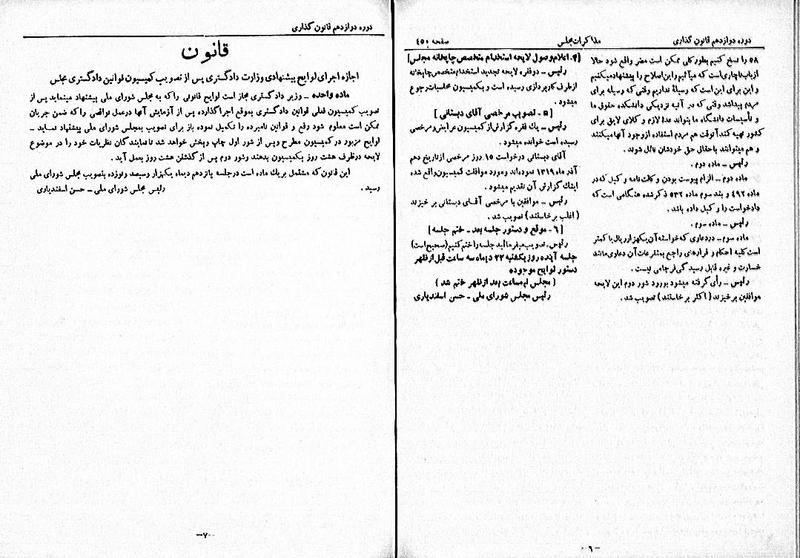 دوره دوازدهم قانون گذاری
مذاکرات مجلس
صفحه ۴۵۰
۵۸ را نسخ کنیم بطور کلی ممکن است مضر واقع شود حالا
از باب ناچاری است که میآئیم و این اصلاح را پیشنهاد میکنیم
و این برای این است که وسیلهٔ نداریم وقتی که وسیله برای
مردم پیدا شد وقتی که در آتیه نزدیکی دانشکده حقوق ما
و تأسیسات دانشگاه ما بتواند عدهٔ لازم و کلای لایق برای
کشور تهیه کند آنوقت هم مردم استفاده از وجود آنها میکنند
و هم میتوانند باحقاق حق خودشان نائل شوند.
رئیس ـ ماده دوم.
ماده دوم ـ الزام پیوست بودن وکالت نامه وکیل که در
ماده ۴۹۲ و بند سوم ماده ۵۳۲ ذکر شده هنگامی است که
دادخواست را وکیل داده باشد.
رئیس ـ ماده سوم.
ماده سوم ـ در دعاوی که خواسته آن یکهزار ریال یا کمتر
است کلیه احکام و قرارهای راجع بمتفرعات آن دعاوی مانند
خسارت و غیره قابل رسیدگی فرجامی نیست.
رئیس ـ رأی گرفته میشود بورود شور دوم این لایحه
موافقین برخیزند (اکثر برخاستند) تصویب شد.
[۴ـ اعلام وصول لایحه استخدام متخصص چاپخانه مجلس]
رئیس ـ دو فقره لایحه تجدید استخدام متخصص چاپخانه
از طرف کارپردازی رسیده است و بکمیسیون محاسبات رجوع
میشود.
[۵ ـ تصویب مرخصی آقای دبستانی]
رئیس ـ یک فقره گزارش از کمیسیون عرایض و مرخصی
رسیده است خوانده میشود.
آقای دبستانی درخواست ۱۵ روز مرخصی از تاریخ دهم
آذر ماه ۱۳۱۹ نموده‌اند و مورد موافقت کمیسیون واقع شده
اینک گزارش آن تقدیم میشود.
رئیس ـ موافقین با مرخصی آقای دبستانی برخیزند
(اغلب برخاستند) تصویب شد.
[۶ ـ موقع و دستور جلسه بعد ـ ختم جلسه]
رئیس ـ تصویب میفرمائید جلسه را ختم کنیم (صحیح است)
جلسه آینده روز یکشنبه ۲۲ دیماه سه ساعت قبل از ظهر
دستور لوایح موجوده
(مجلس ساعت بعد از ظهر ختم شد)
رئیس مجلس شورای ملی ـ حسن اسفندیاری
ـ۶ـ
دوره دوازدهم قانون گذاری
قانون
اجازه اجرای لوایح پیشنهادی وزارت دادگستری پس از تصویب کمیسیون قوانین دادگستری مجلس
ماده واحده ـ وزیر دادگستری مجاز است لوایح قانونی را که به مجلس شورای ملی پیشنهاد مینماید پس از
تصویب کمیسیون فعلی قوانین دادگستری بموقع اجرا گذارده پس از آزمایش آنها در عمل نواقصی را که ضمن جریان
ممکن است معلوم شود رفع و قوانین نامبرده را تکمیل نموده باز برای تصویب بمجلس شورای ملی پیشنهاد نماید ـ
لوایح مزبور در کمیسیون مطرح و پس از شور اول چاپ و پخش خواهد شد تا نمایندگان نظریات خود را در موضوع
لایحه در ظرف هشت روز بکمیسیون بدهند و شور دوم پس از گذشتن هشت روز بعمل آید.
این قانون که مشتمل بر یک ماده است در جلسه پانزدهم دیماه یکهزار و سیصد و نوزده بتصویب مجلس شورای ملی
رسید.
رئیس مجلس شورای ملی ـ حسن اسفندیاری
ـ۷ـ